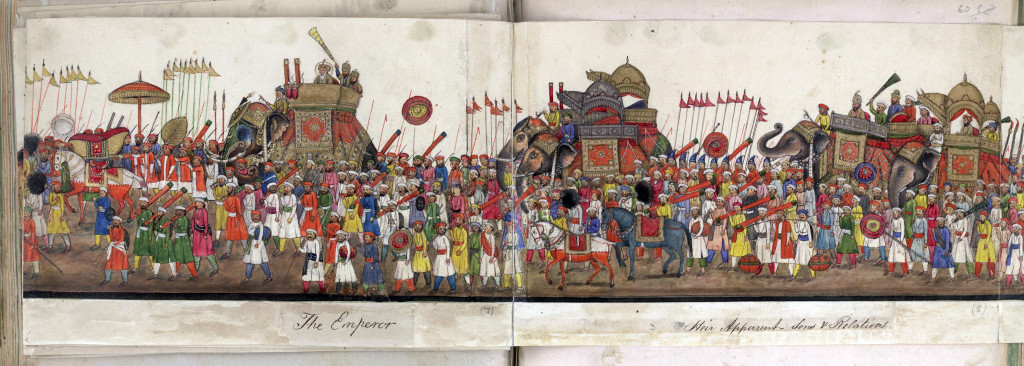 The Emperor
(1)
Heir Apparent - Sons & Relatives
(2)